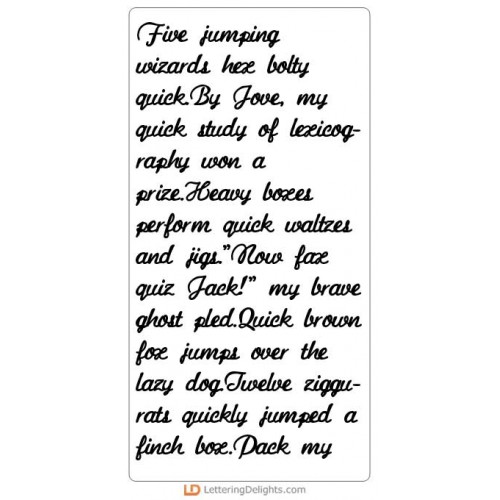 Five jumping
wizards hex bolty
quick.By Jove, my
quick study of lexicog-
raphy won a
prize.Heavy boxes
perform quick waltzes
and jigs."Now fax
quiz Jack!" my brave
ghost pled.Quick brown
fox jumps over the
lazy dog.Twelve ziggu-
rats quickly jumped a
finch box.Pack my
LD LetteringDelights.com